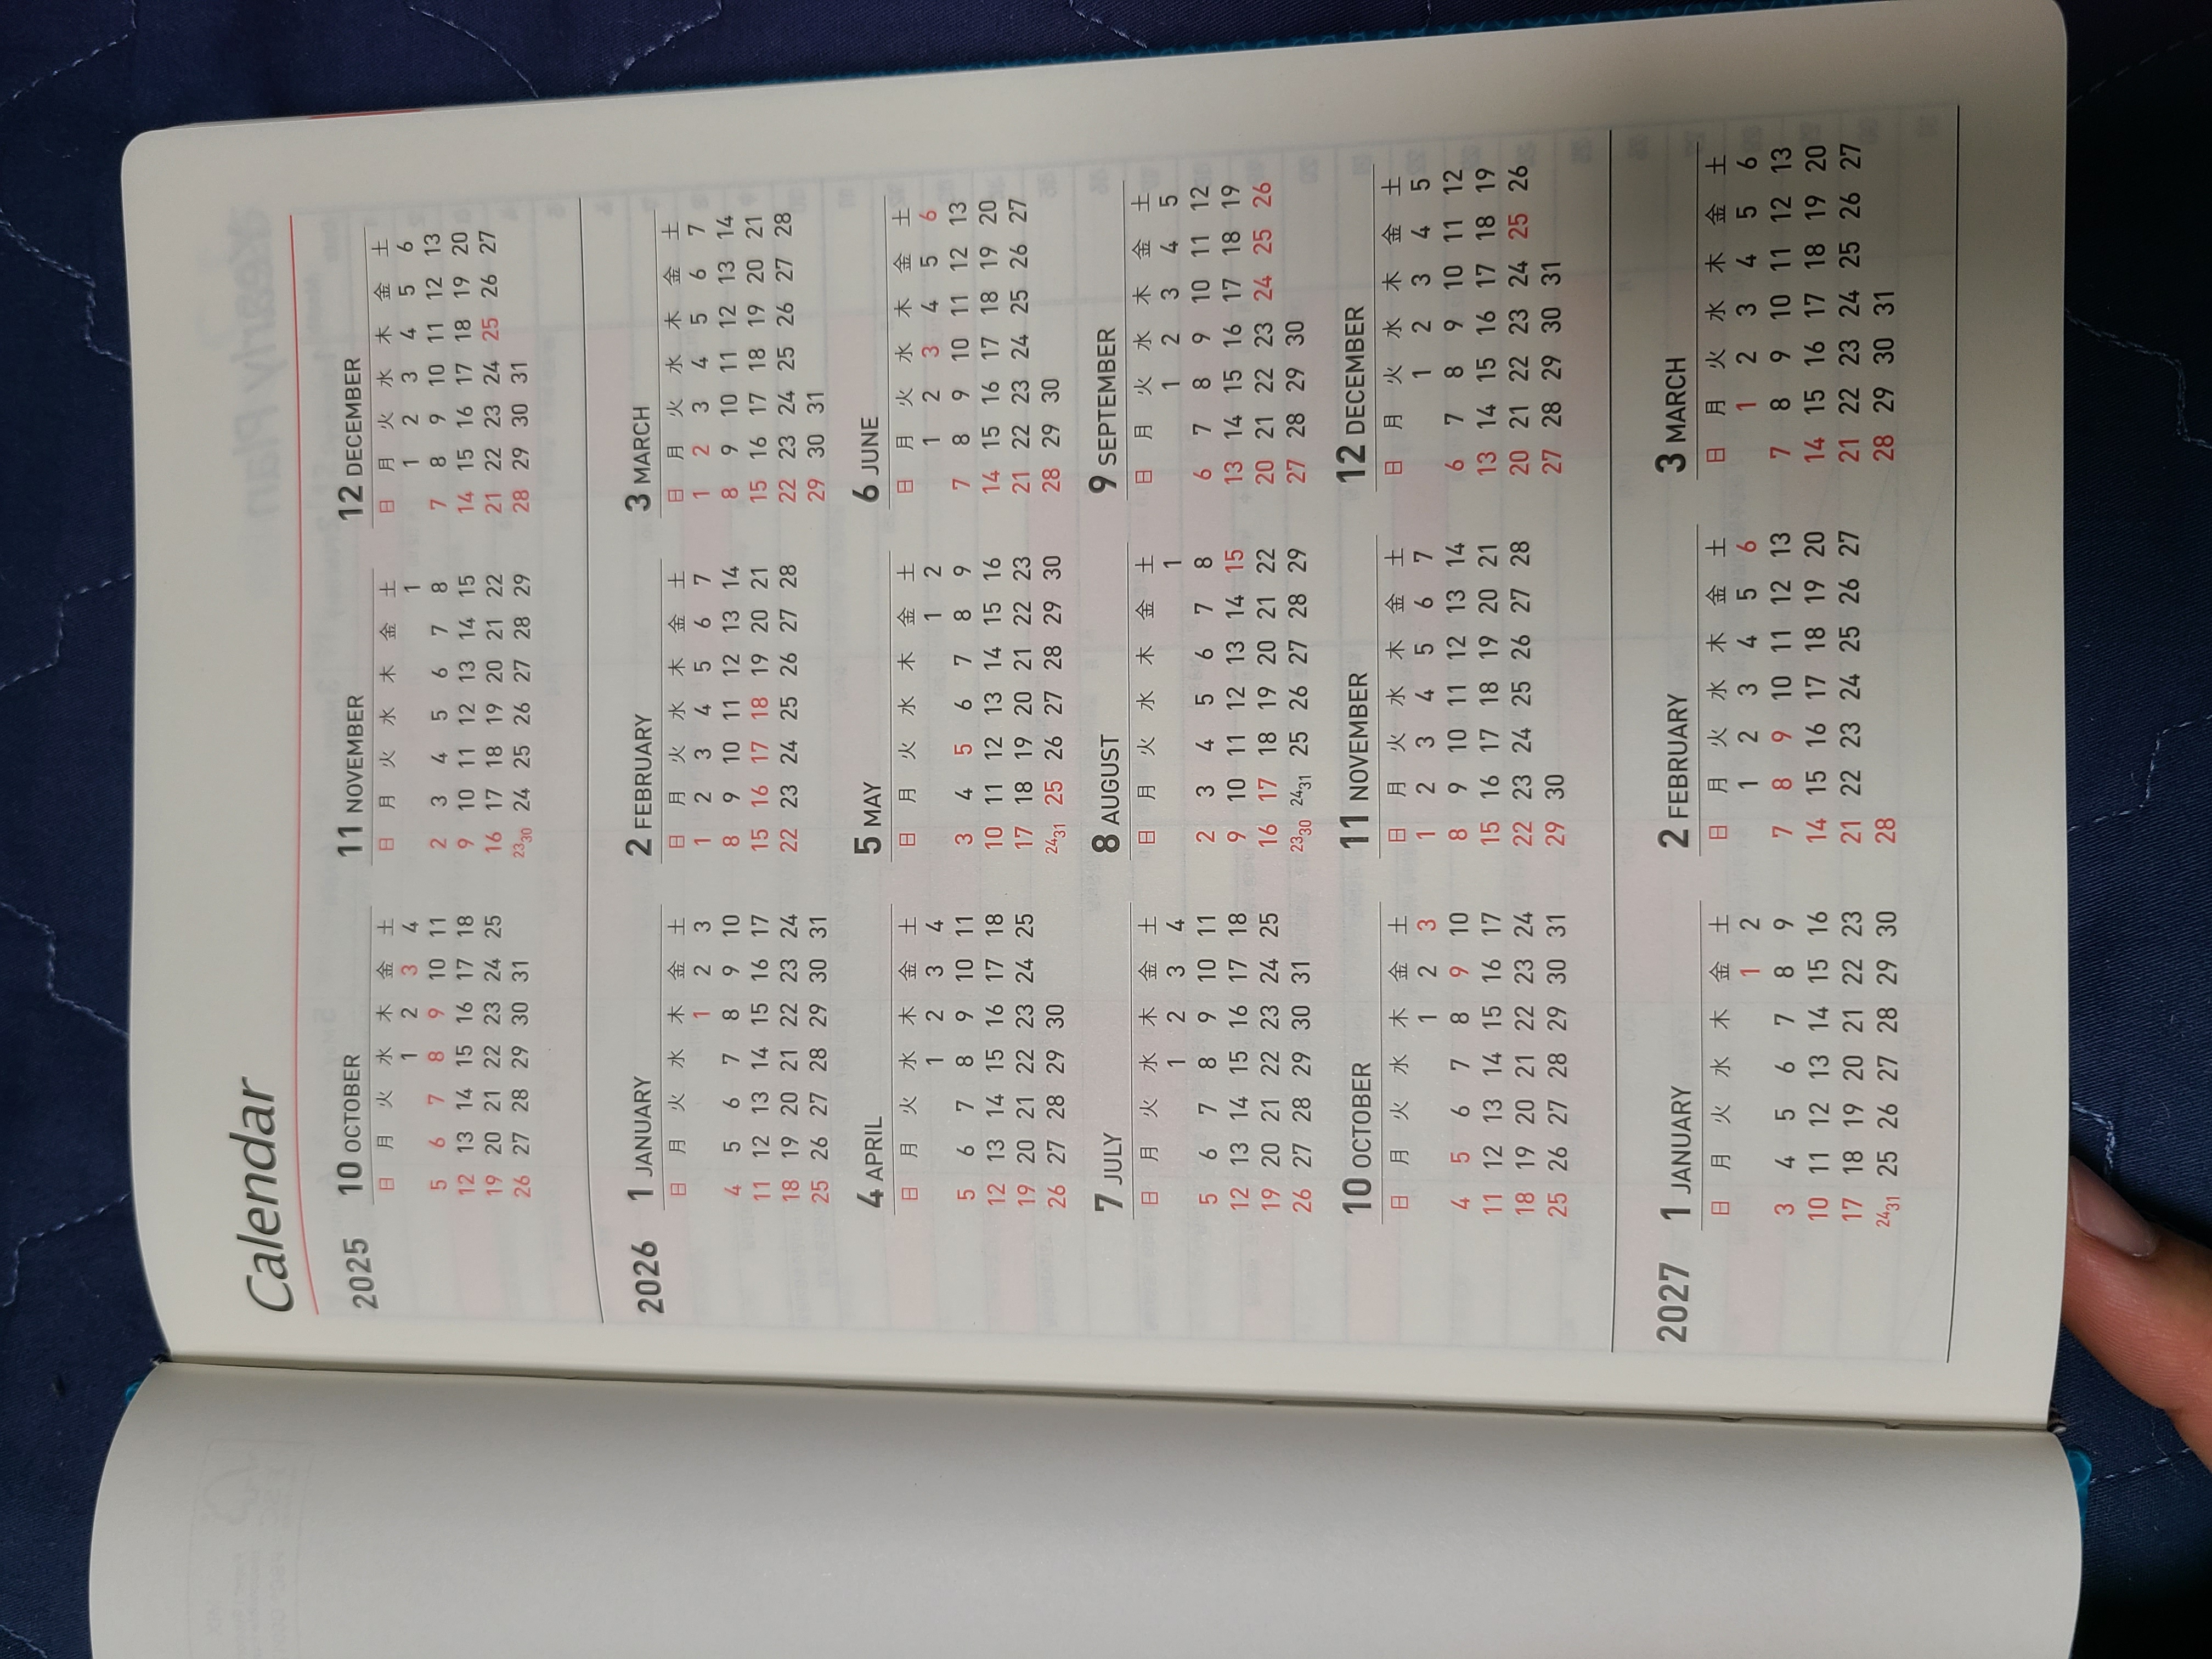 Calendar
2025
10 OCTOBER
日 月 火 水 木 金 土
1 2 3 4
5 6 7 8 9 10 11
12 13 14 15 16 17 18
19 20 21 22 23 24 25
26 27 28 29 30 31
11 NOVEMBER
日 月 火 水 木 金 土
1
2 3 4 5 6 7 8
9 10 11 12 13 14 15
16 17 18 19 20 21 22
23 30 24 25 26 27 28 29
12 DECEMBER
日 月 火 水 木 金 土
1 2 3 4 5 6
7 8 9 10 11 12 13
14 15 16 17 18 19 20
21 22 23 24 25 26 27
28 29 30 31
2026
1 JANUARY
日 月 火 水 木 金 土
1 2 3
4 5 6 7 8 9 10
11 12 13 14 15 16 17
18 19 20 21 22 23 24
25 26 27 28 29 30 31
2 FEBRUARY
日 月 火 水 木 金 土
1 2 3 4 5 6 7
8 9 10 11 12 13 14
15 16 17 18 19 20 21
22 23 24 25 26 27 28
3 MARCH
日 月 火 水 木 金 土
1 2 3 4 5 6 7
8 9 10 11 12 13 14
15 16 17 18 19 20 21
22 23 24 25 26 27 28
29 30 31
4 APRIL
日 月 火 水 木 金 土
1 2 3 4
5 6 7 8 9 10 11
12 13 14 15 16 17 18
19 20 21 22 23 24 25
26 27 28 29 30
5 MAY
日 月 火 水 木 金 土
1 2
3 4 5 6 7 8 9
10 11 12 13 14 15 16
17 18 19 20 21 22 23
24 31 25 26 27 28 29 30
6 JUNE
日 月 火 水 木 金 土
1 2 3 4 5 6
7 8 9 10 11 12 13
14 15 16 17 18 19 20
21 22 23 24 25 26 27
28 29 30
7 JULY
日 月 火 水 木 金 土
1 2 3 4
5 6 7 8 9 10 11
12 13 14 15 16 17 18
19 20 21 22 23 24 25
26 27 28 29 30 31
8 AUGUST
日 月 火 水 木 金 土
1
2 3 4 5 6 7 8
9 10 11 12 13 14 15
16 17 18 19 20 21 22
23 30 24 31 25 26 27 28 29
9 SEPTEMBER
日 月 火 水 木 金 土
1 2 3 4 5
6 7 8 9 10 11 12
13 14 15 16 17 18 19
20 21 22 23 24 25 26
27 28 29 30
10 OCTOBER
日 月 火 水 木 金 土
1 2 3
4 5 6 7 8 9 10
11 12 13 14 15 16 17
18 19 20 21 22 23 24
25 26 27 28 29 30 31
11 NOVEMBER
日 月 火 水 木 金 土
1 2 3 4 5 6 7
8 9 10 11 12 13 14
15 16 17 18 19 20 21
22 23 24 25 26 27 28
29 30
12 DECEMBER
日 月 火 水 木 金 土
1 2 3 4 5
6 7 8 9 10 11 12
13 14 15 16 17 18 19
20 21 22 23 24 25 26
27 28 29 30 31
2027
1 JANUARY
日 月 火 水 木 金 土
1 2
3 4 5 6 7 8 9
10 11 12 13 14 15 16
17 18 19 20 21 22 23
24 31 25 26 27 28 29 30
2 FEBRUARY
日 月 火 水 木 金 土
1 2 3 4 5 6
7 8 9 10 11 12 13
14 15 16 17 18 19 20
21 22 23 24 25 26 27
28
3 MARCH
日 月 火 水 木 金 土
1 2 3 4 5 6
7 8 9 10 11 12 13
14 15 16 17 18 19 20
21 22 23 24 25 26 27
28 29 30 31